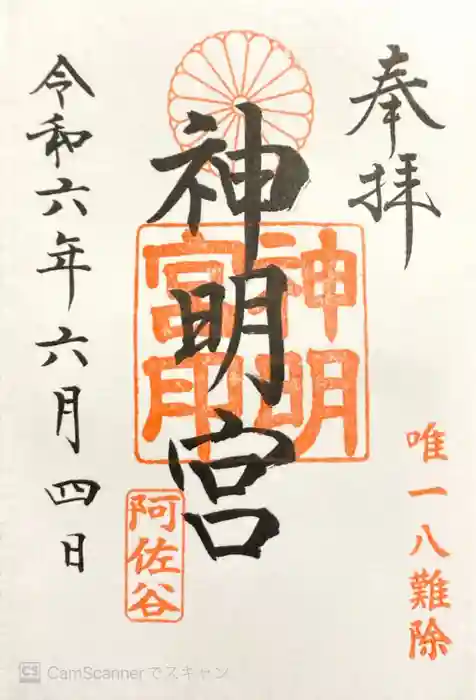 奉拝
唯一八難除
神明宮
神明
宮印
阿佐谷
令和六年六月四日
CS CamScannerでスキャン